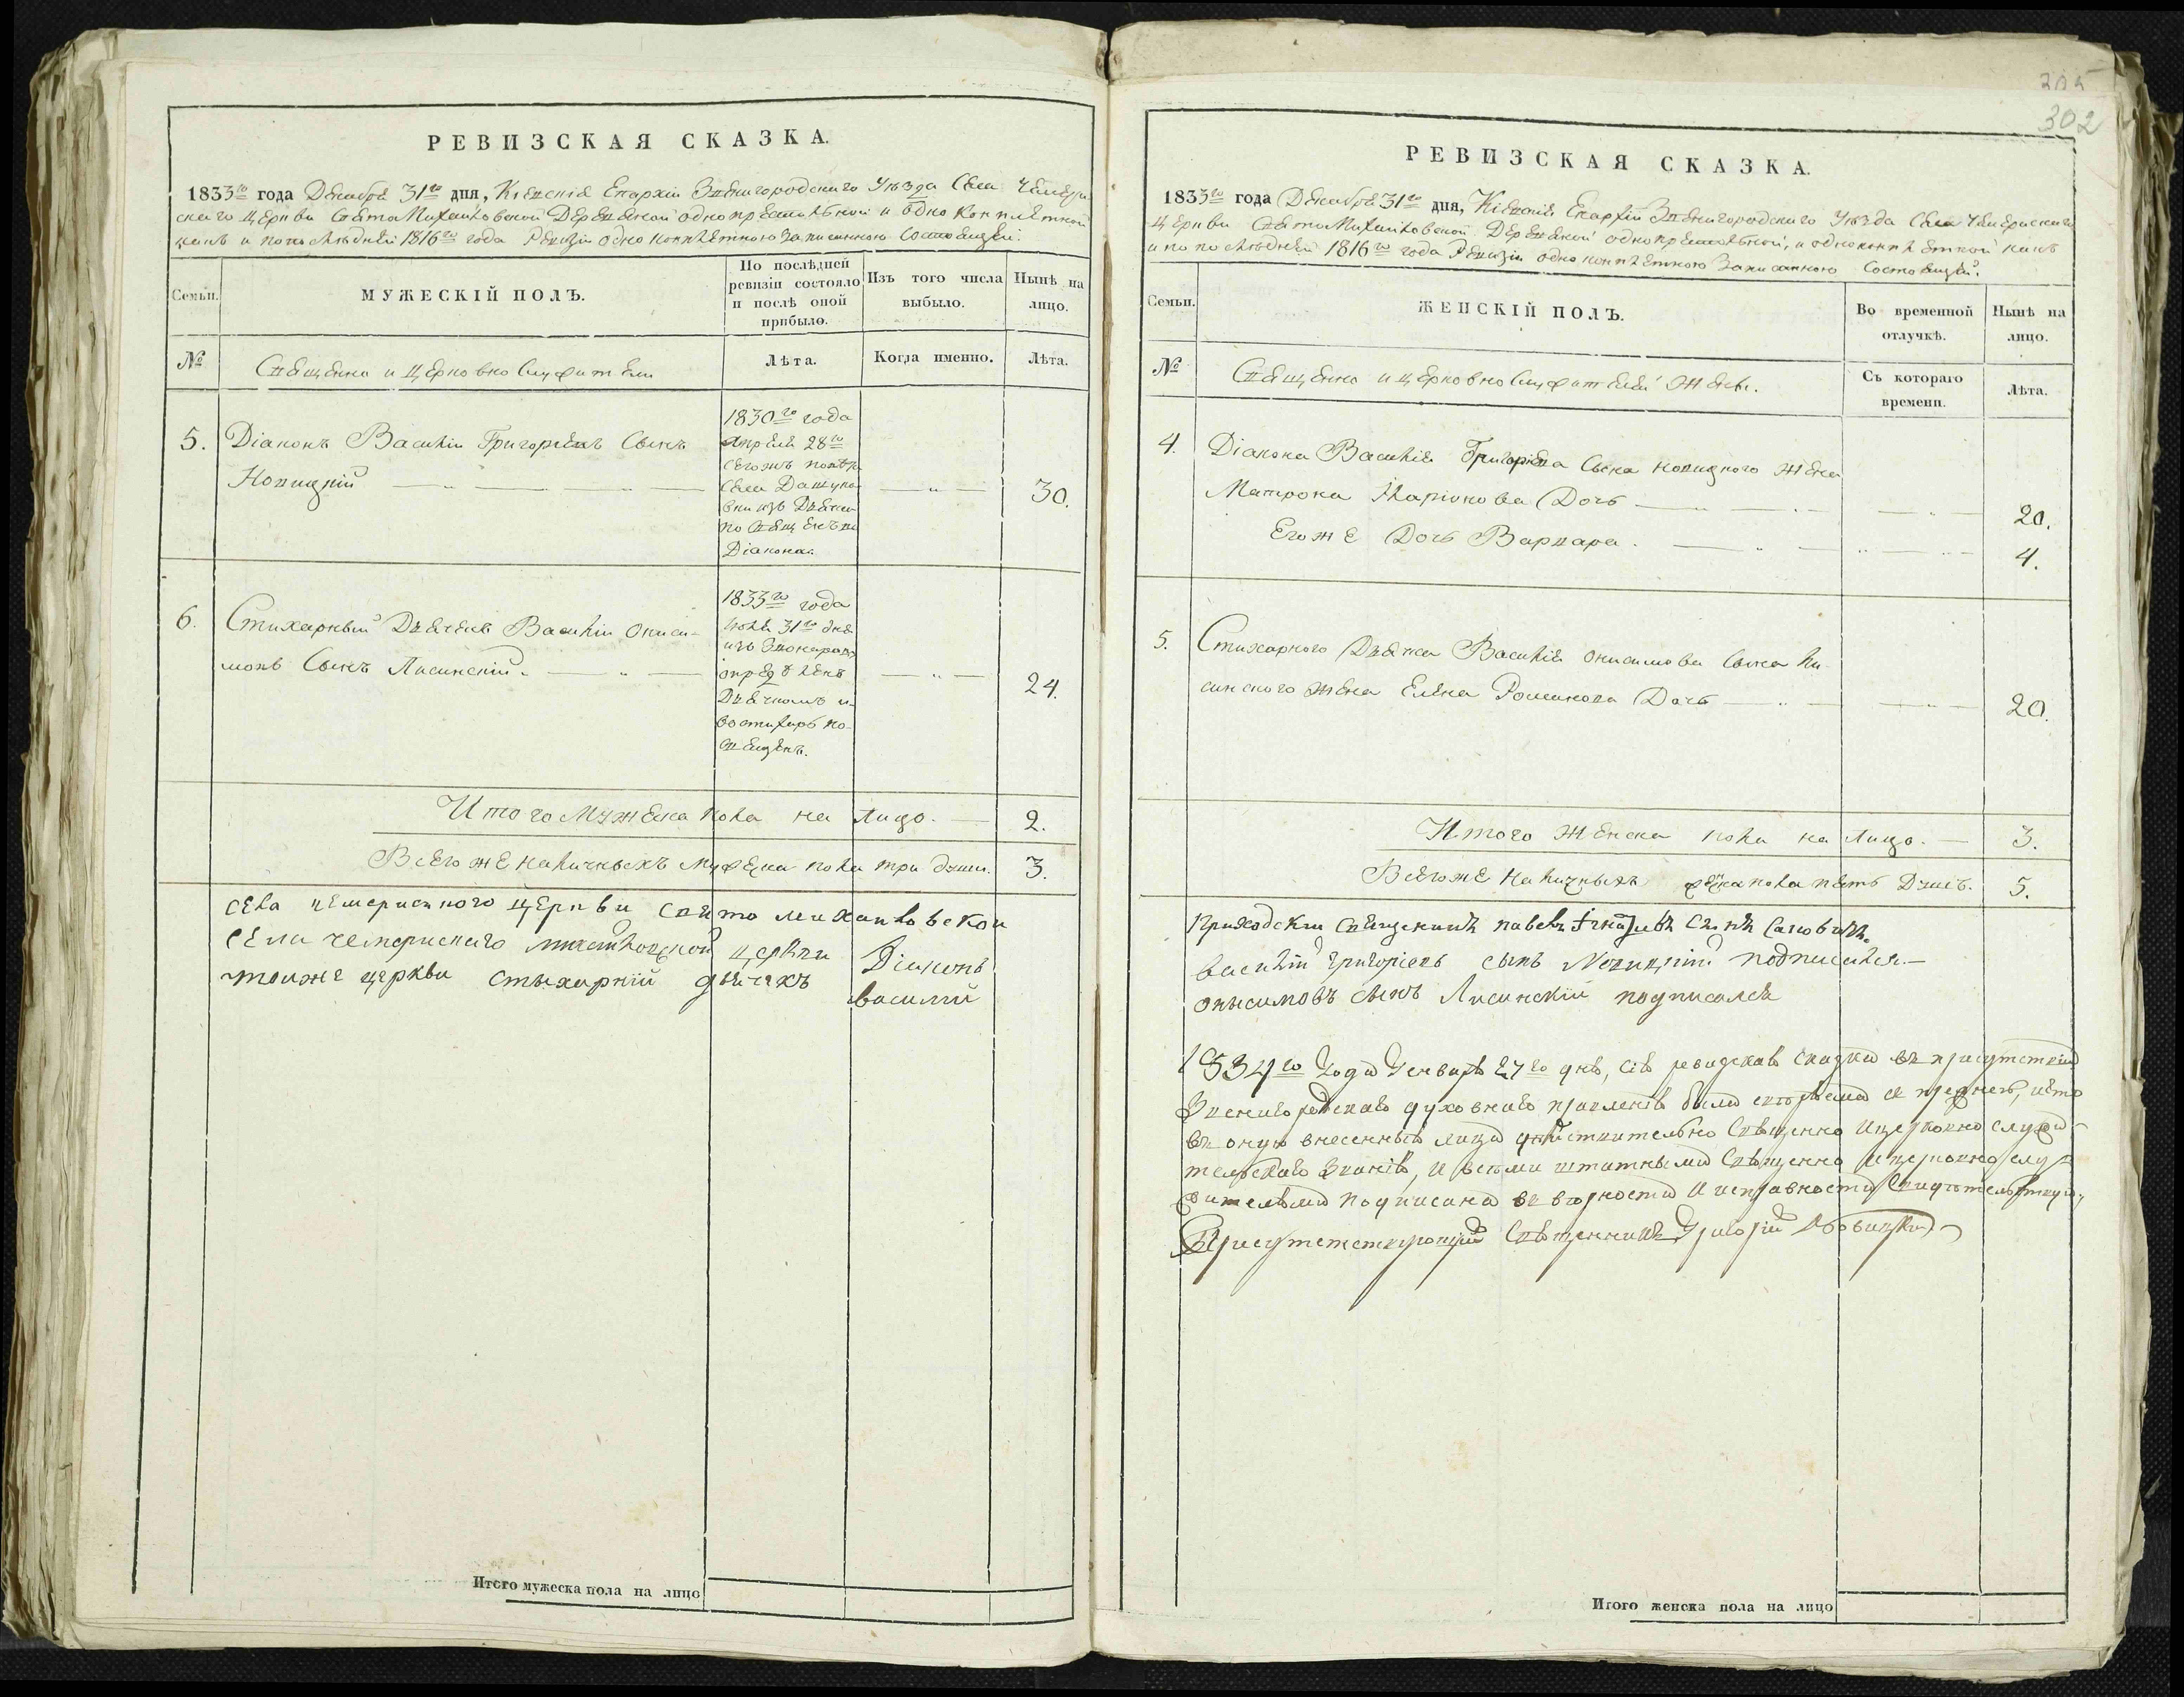 РЕВИЗСКАЯ СКАЗКА.
1833го года Декабря 31го дня, Кіевскія Епархіи Звенигородскаго Уѣзда Села Чемери-
скаго Церкви СвятоМихайловской Деревяной однопрестольной и одно комплетной
какъ и попослѣдней 1816го года Ревизіи однокомплетною записанною Состоящей.
Семьи.
МУЖЕСКІЙ ПОЛЪ.
По послѣдней ревизіи состояло и послѣ оной прибыло.
Изъ того числа выбыло.
Нынѣ на лицо.
№
Священно и Церковно Служители
Лѣта.
Когда именно.
Лѣта.
5. Діаконъ Василій Григоріевъ Сынъ
Новицкій
1830го года
Апреля 28го
Села
Діакона.
30.
6. Стихарный Дьячекъ ВасилійОниси-
мовъ Сынъ Лисинскій.
1833го года
31го дня
изъ Звонарей
опредѣленъ
Дьячкомъ и
востихарь по-
священъ.
24.
Итого Мужеска пола на Лицо. 2.
Всего же наличныхъ мужеска пола три души. 3.
Села Чемериского Церкви Свято михайловской
Села Чемериского михайловской церкви Діаконъ
тоиже церкви стыхарній дьячекъ василій
Итого мужеска пола на лицо
305
302
РЕВИЗСКАЯ СКАЗКА.
1833го года Декабря 31го дня, Кіевскія Епархіи Звенигородскаго Уѣзда Села Чемерискаго
Церкви СвятоМихайловской Деревяной однопрестольной, и однокомплетной какъ
и по послѣдней 1816го года Ревизіи однокомплетною Записанною Состоящей.
Семьи.
ЖЕНСКІЙ ПОЛЪ.
Во временной отлучкѣ.
Нынѣ на лицо.
№
Священно и церковно Служителей Жены.
Съ котораго времени.
Лѣта.
4. Діакона Василія Григоріева Сына Новицкого Жена
Матрона Иларіонова Дочь 20.
Егоже Дочь Варвара. 4.
5. Стихарного Дьячка Василія Онисимова Сына Ли-
синского Жена Елена Романова Дочь 20.
Итого Женска пола на Лицо. 3.
Всегоже Наличныхъ женска пола пять Душъ. 5.
Приходскій Священникъ павелъ Игнатіевъ Сынъ
василій григоріевъ сынъ Новицкій подписался.
онысимовъ сынъ Лисинскій подписался
1834го Года Генваря 27го дня, сія ревизская сказка въ присутствіи
Звенигородскаго духовнаго правленія была, что
въ оную внесенныя лица дѣйствительно Священно и церковно служи-
тельскаго Званія, и всѣми штатными Священно и церковно слу-
жителями подписана въ вѣрности и исправности Свидѣтельствую,
Присутствующій Священникъ Григорій
Итого женска пола на лицо